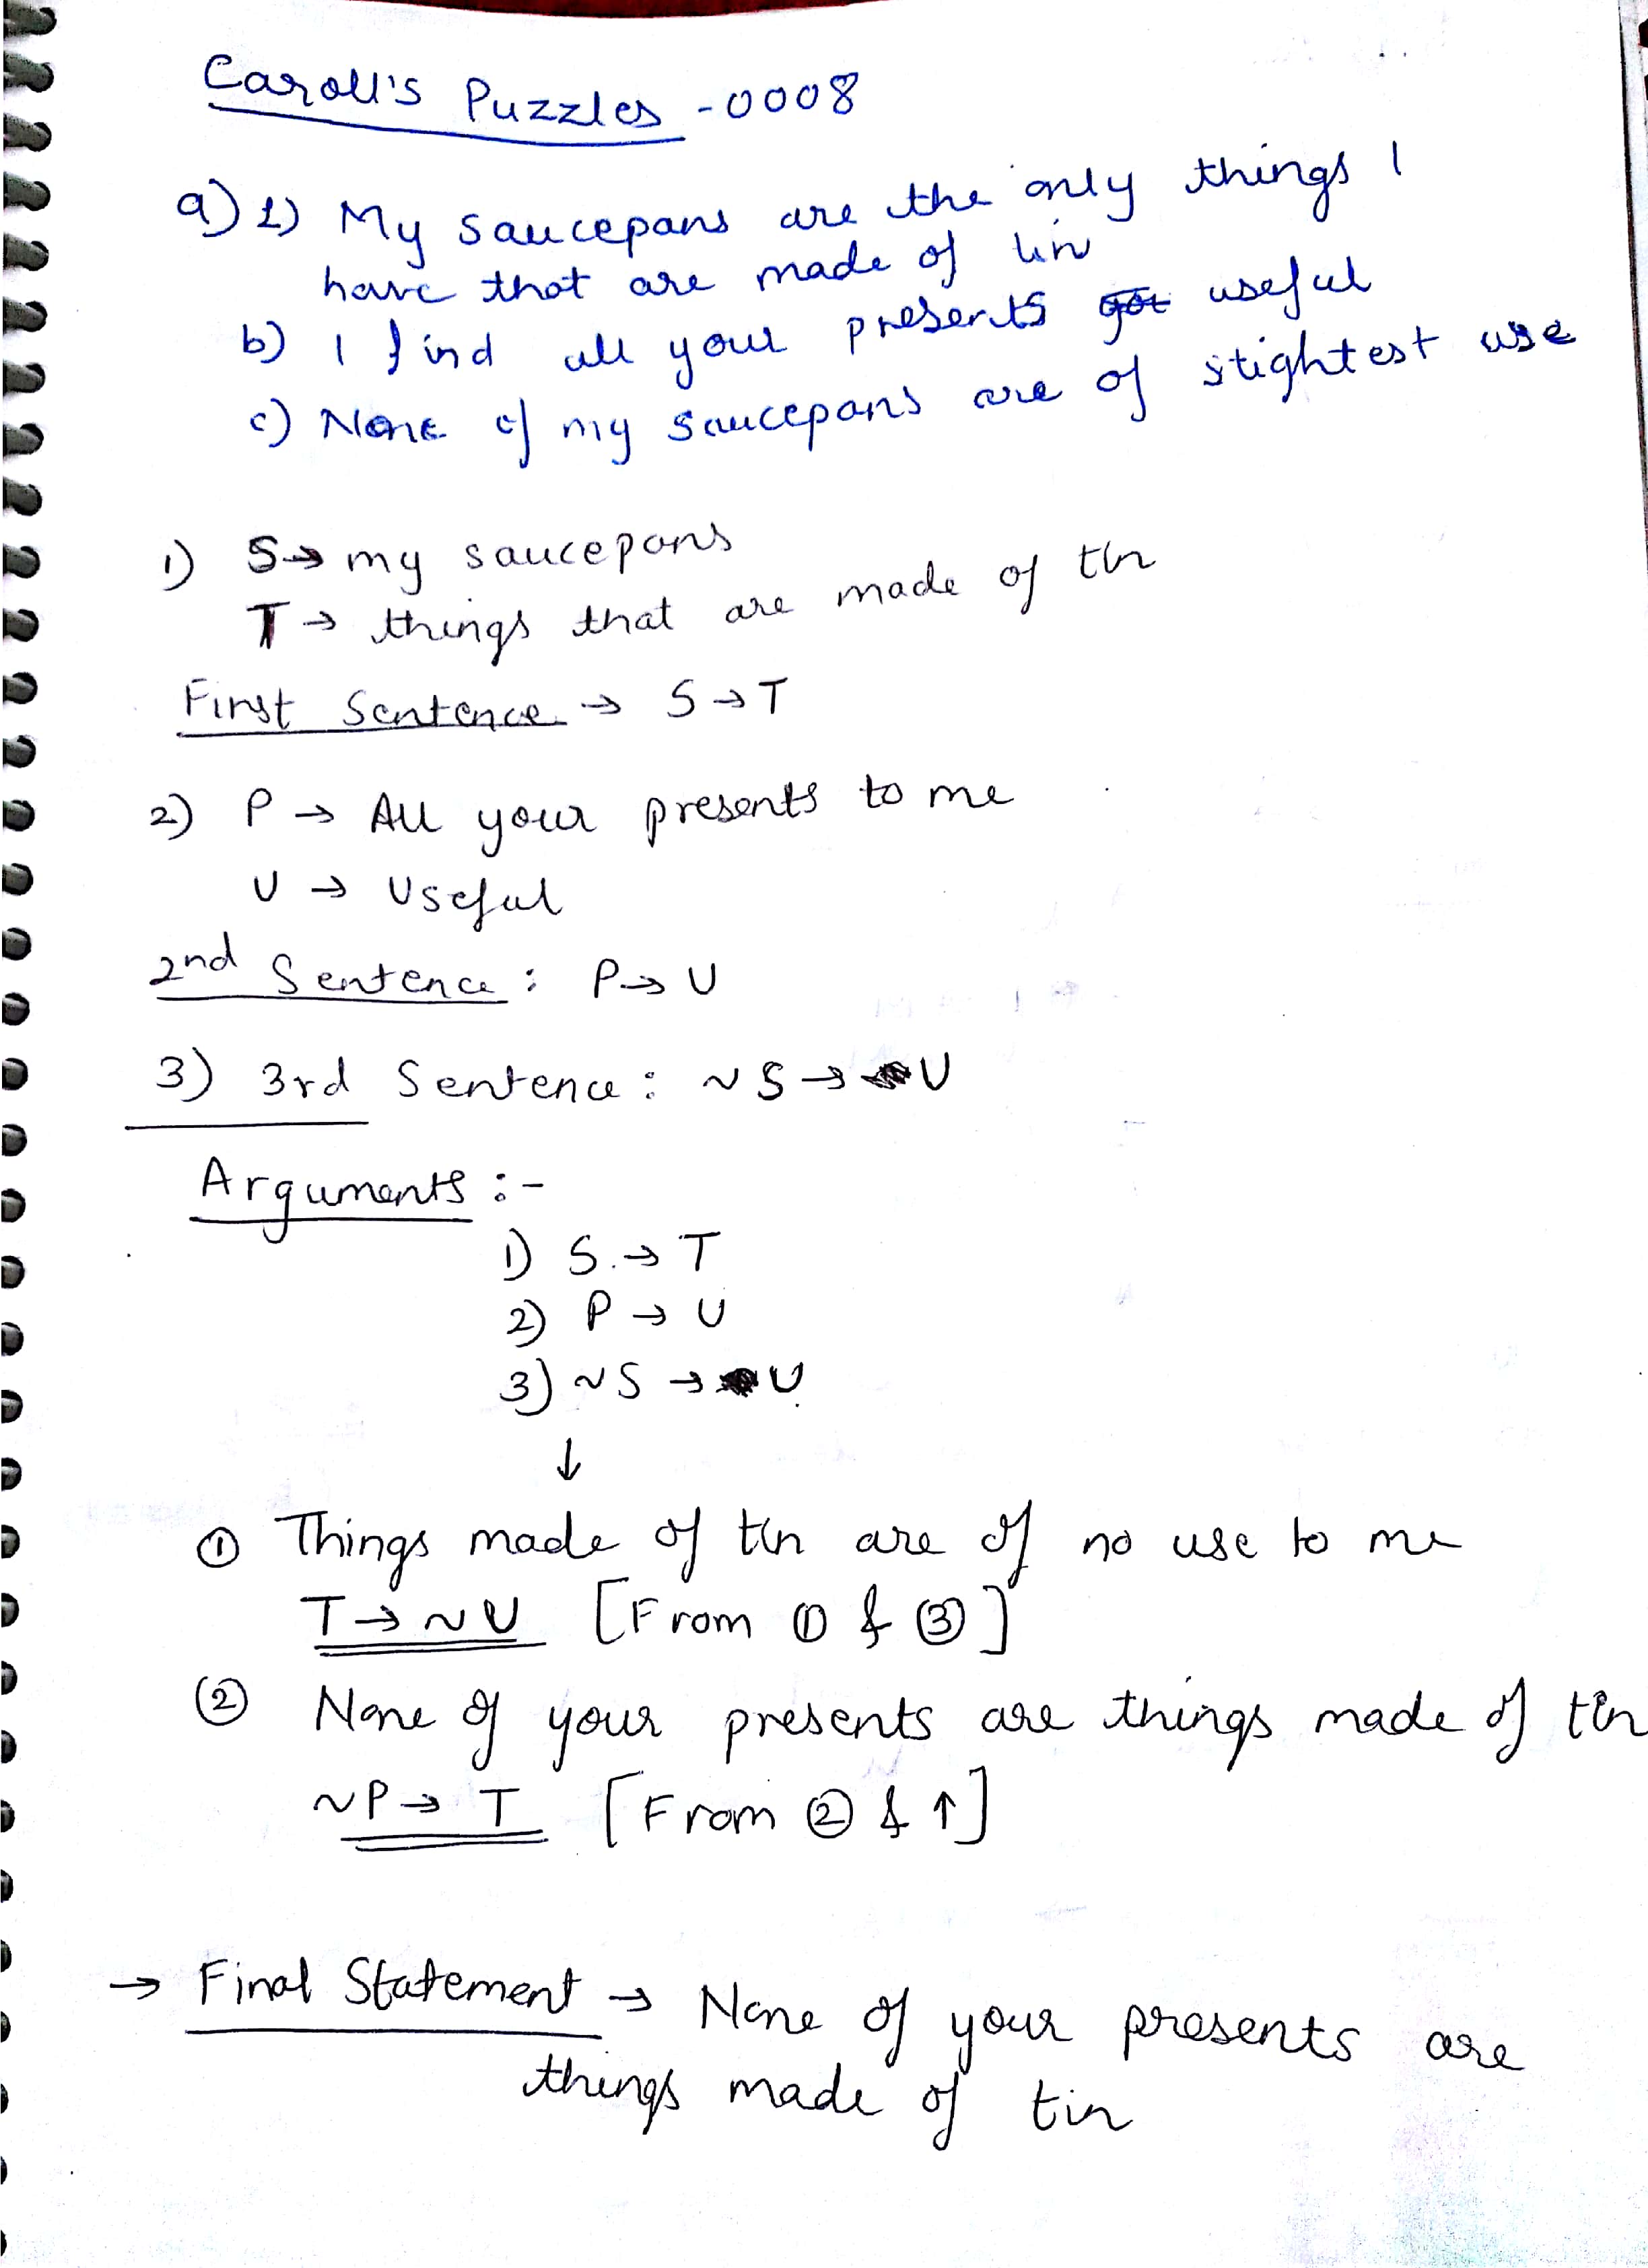 Caroll's Puzzles - 0008
a) 1) My saucepans are the only things I
have that are made of tin
b) I find all your presents got useful
c) None of my saucepans are of slightest use
1) S → my saucepans
T → things that are made of tin
First Sentence → S → T
2) P → All your presents to me
U → Useful
2nd Sentence : P → U
3) 3rd Sentence : ~S → U
Arguments :-
1) S → T
2) P → U
3) ~S → U
↓
① Things made of tin are of no use to me
T → ~U [From ① & ③]
② None of your presents are things made of tin
~P → T [From ② & ↑]
→ Final Statement → None of your presents are
things made of tin